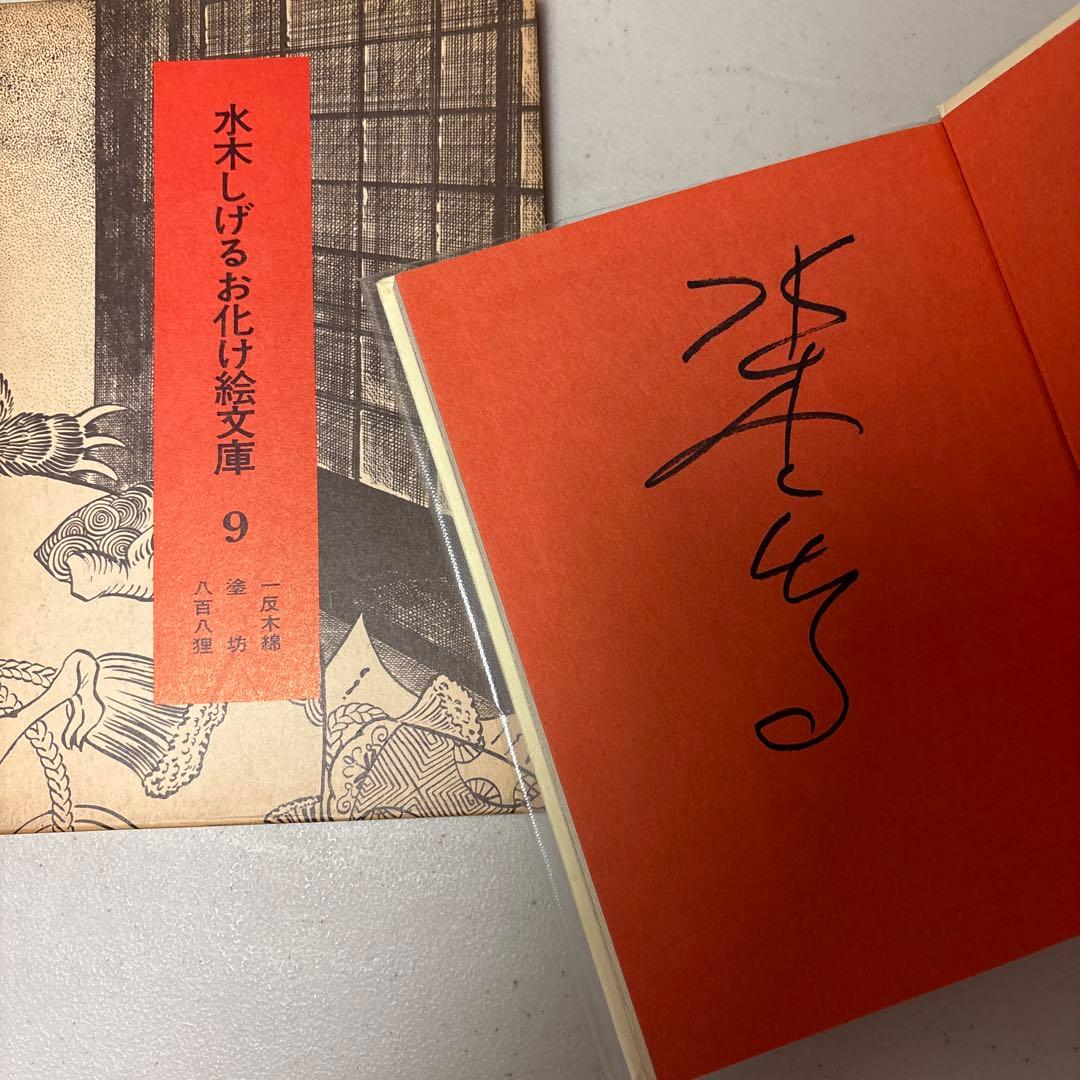 水木しげるお化け絵文庫
9
一反木綿
塗坊
八百八狸
水木しげる